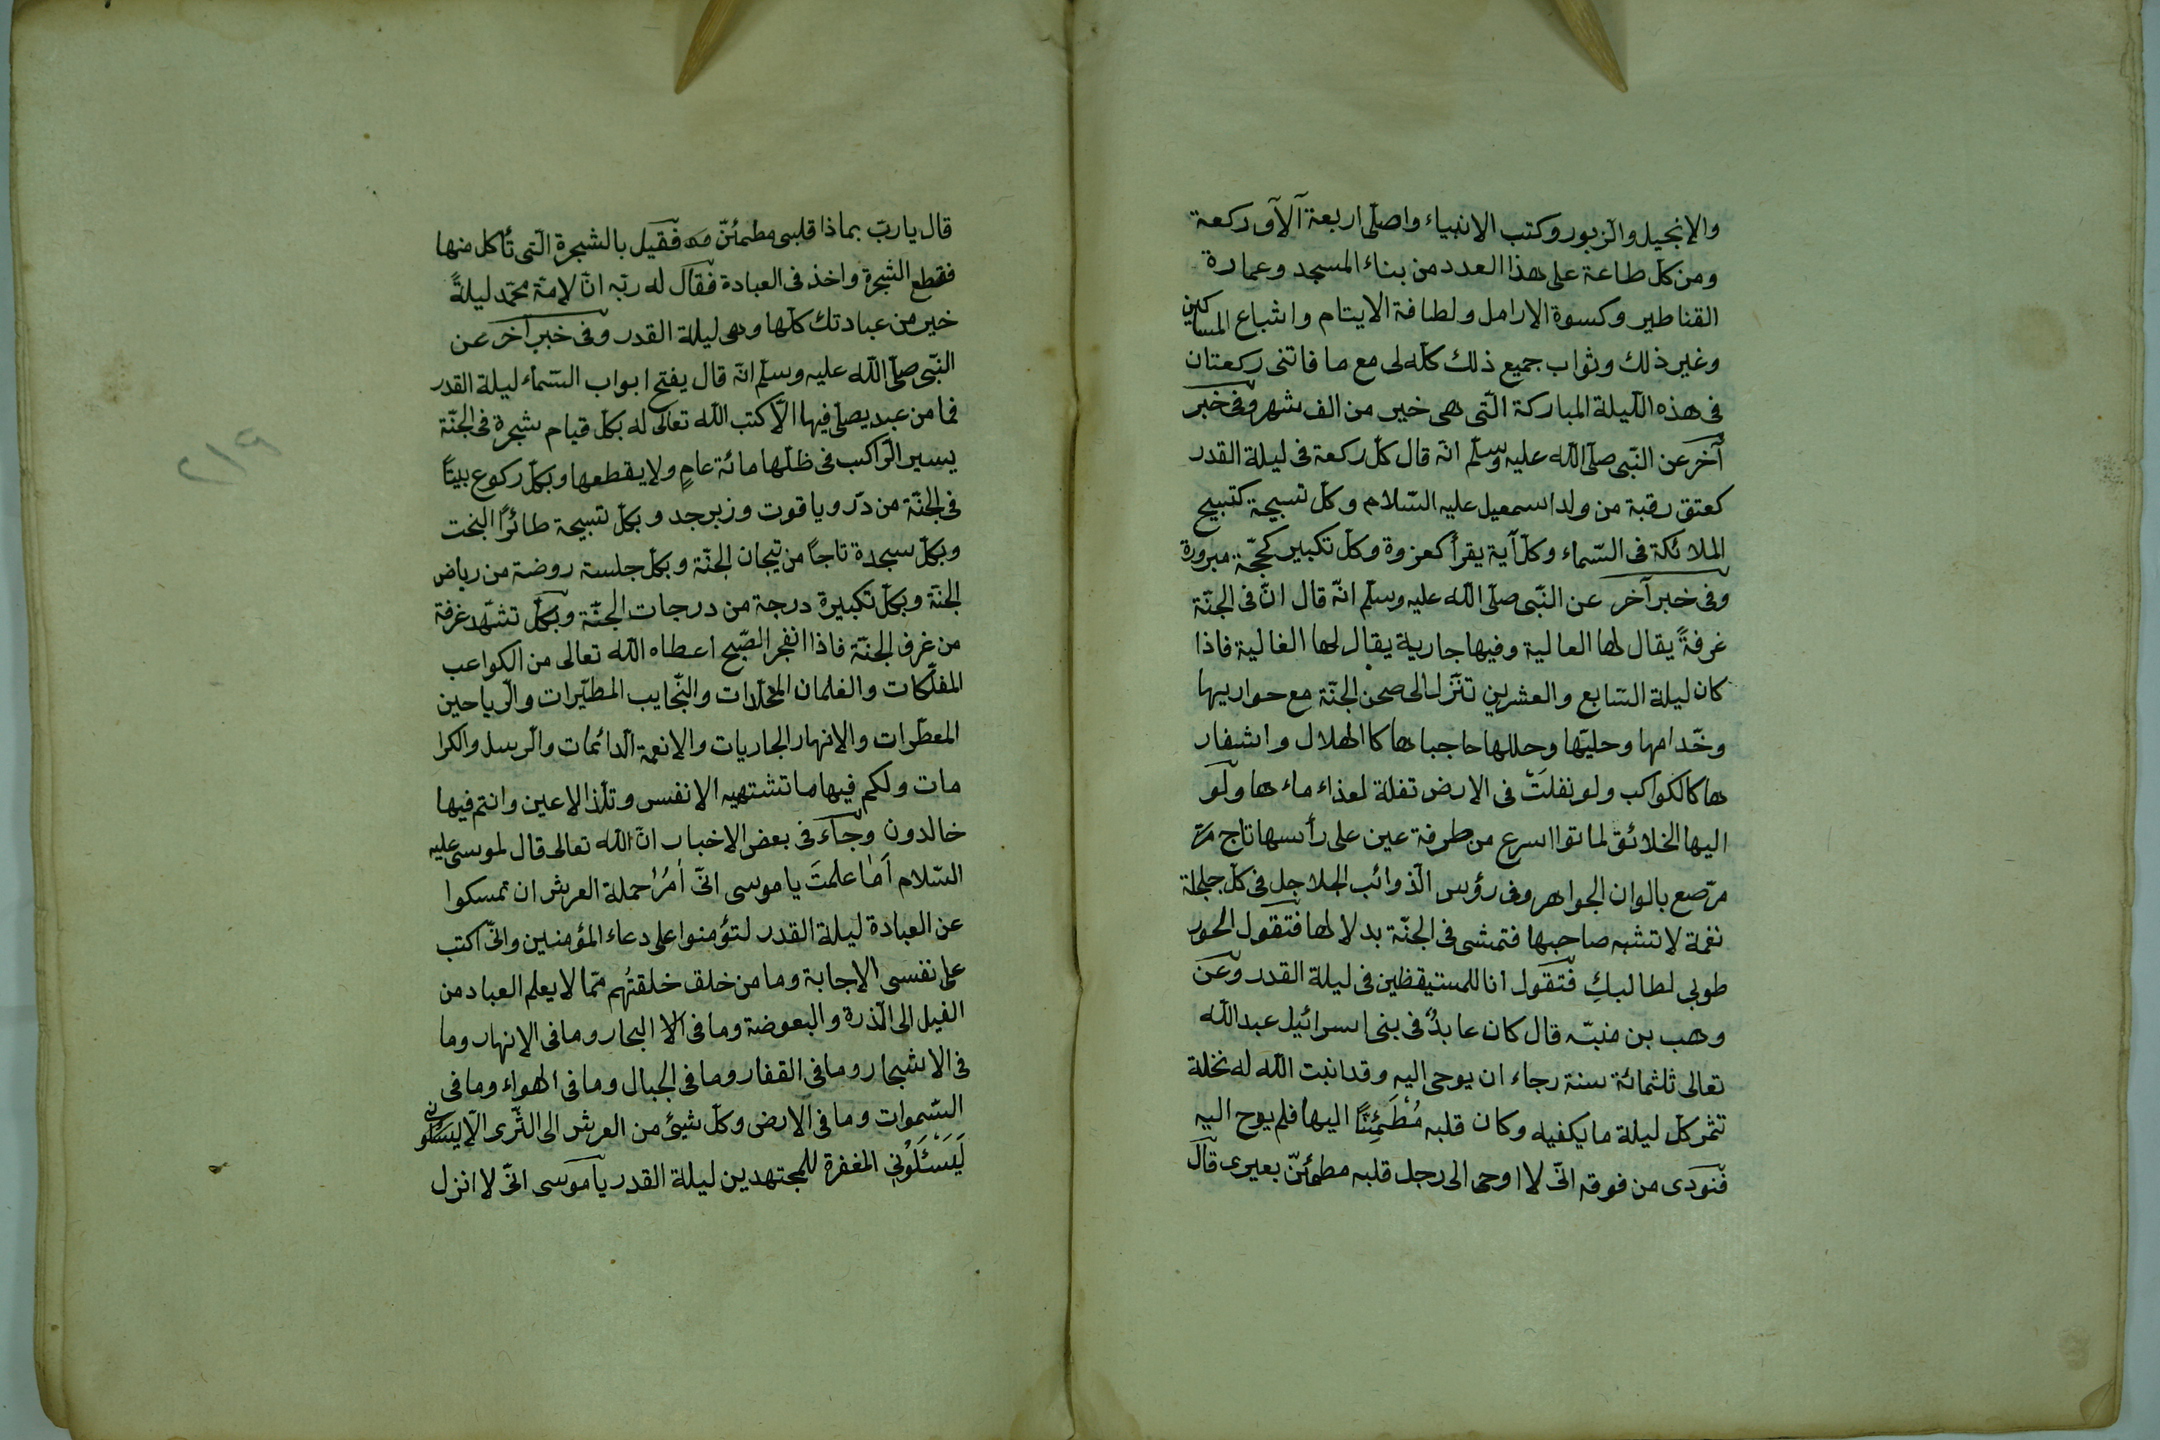 والإنجيل والزبور وكتب الانبياء واصلّى اربعة آلاف ركعة
ومن كلّ طاعة على هذا العدد من بناء المسجد وعمارة
القناطير وكسوة الارامل ولطافة الايتام واشباع المساكين
وغير ذلك وثواب جميع ذلك كلّه لى مع ما فاتنى ركعتان
فى هذه اللّيلة المباركة الّتى هى خير من الف شهر وفى خبر
آخر عن النّبى صلّى اللّه عليه وسلّم انّه قال كلّ ركعة فى ليلة القدر
كعتق رقبة من ولد اسمعيل عليه السّلام وكلّ تسبيحة كتسبيح
الملائكة فى السّماء وكلّ آية يقرأ كغزوة وكلّ تكبير كحجّة مبرورة
وفى خبر آخر عن النّبى صلّى اللّه عليه وسلّم انّه قال انّ فى الجنّة
غرفةً يقال لها العالية وفيها جارية يقال لها الغالية فاذا
كان ليلة السّابع والعشرين تنّزل الى صحن الجنّة مع حواريها
وخّدامها وحليّها وحللها حاجباها كا الهلال واشفار
ها كالكواكب ولو تفلَتْ فى الارض تفلة لعذاء ماءها ولو
اليها الخلائق لماتوا اسرع من طرفة عين على رأسها تاج
مرّصع بالوان الجواهر وفى رؤس الذّوائب الجلاجل فى كلّ جلجلة
نغمة لا تشبه صاحبها فتمشى فى الجنّة بدلالها فتقول الحور
طوبى لطالبكِ فتقول انا للمستيقظين فى ليلة القدر وعن
وهب بن منبّه قال كان عابدٌ فى بنى اسرائيل عبد اللّه
تعالى ثلثمائة سنة رجاء ان يوحى اليه وقد انبت اللّه له نخلة
تثمر كلّ ليلة ما يكفيه وكان قلبه مُطْمَئِنًّا اليها فلم يوح اليه
فنودى من فوقه انّى لا اوحى الى رجل قلبه مطمئنّ بغيرى قال
قال يا ربّ بماذا قلبى مطمئنّ فقيل بالشجرة الّتى تأكل منها
فقطع الشجرة واخذ فى العبادة فقال له ربّه انّ لامّة محمّد ليلةً
خير من عبادتك كلّها وهى ليلة القدر وفى خبر آخر عن
النّبى صلّى اللّه عليه وسلّم انّه قال يفتح ابواب السّماء ليلة القدر
فما من عبد يصلّى فيها الّا كتب اللّه تعالى له بكلّ قيام شجرة فى الجنّة
يسير الرّاكب فى ظلّها مائة عامٍ ولا يقطعها وبكلّ ركوع بيتًا
فى الجنّة من درّ وياقوت وزبرجد وبكلّ تسبيحة طائرًا البخت
وبكلّ سجدة تاجًا من تيجان الجنّة وبكلّ جلسة روضة من رياض
الجنّة وبكلّ تكبيرة درجة من درجات الجنّة وبكلّ تشهّد غرفة
من غرف الجنّة فاذا انفجر الصّبح اعطاه اللّه تعالى من الكواعب
المفلّكات والغلمان المخلّدات والنّجايب المطيّرات والرّياحين
المعطّرات والانهار الجاريات والانعمة الدائمات والرّسل والكرا
مات ولكم فيها ما تشتهيه الانفس وتلّذ الاعين وانتم فيها
خالدون وجاء فى بعض الاخبار انّ اللّه تعالى قال لموسى عليه
السّلام أما علمتَ يا موسى انّى أمرُ حملة العرش ان تمسكوا
عن العبادة ليلة القدر لتؤمنوا على دعاء المؤمنين وانّى اكتب
على نفسى الاجابة وما من خلق خلقتُهم ممّا لا يعلم العباد من
الفيل الى الذّرة والبعوضة وما فى الا البحار وما فى الانهار وما
فى الاشجار وما فى القفار وما فى الجبال وما فى الهواء وما فى
السّموات وما فى الارض وكلّ شيئ من العرش الى الثّرى الّا يسئلونى
لَيَسْئَلُونِى المغفرة للمجتهدين ليلة القدر يا موسى انّى لا انزل